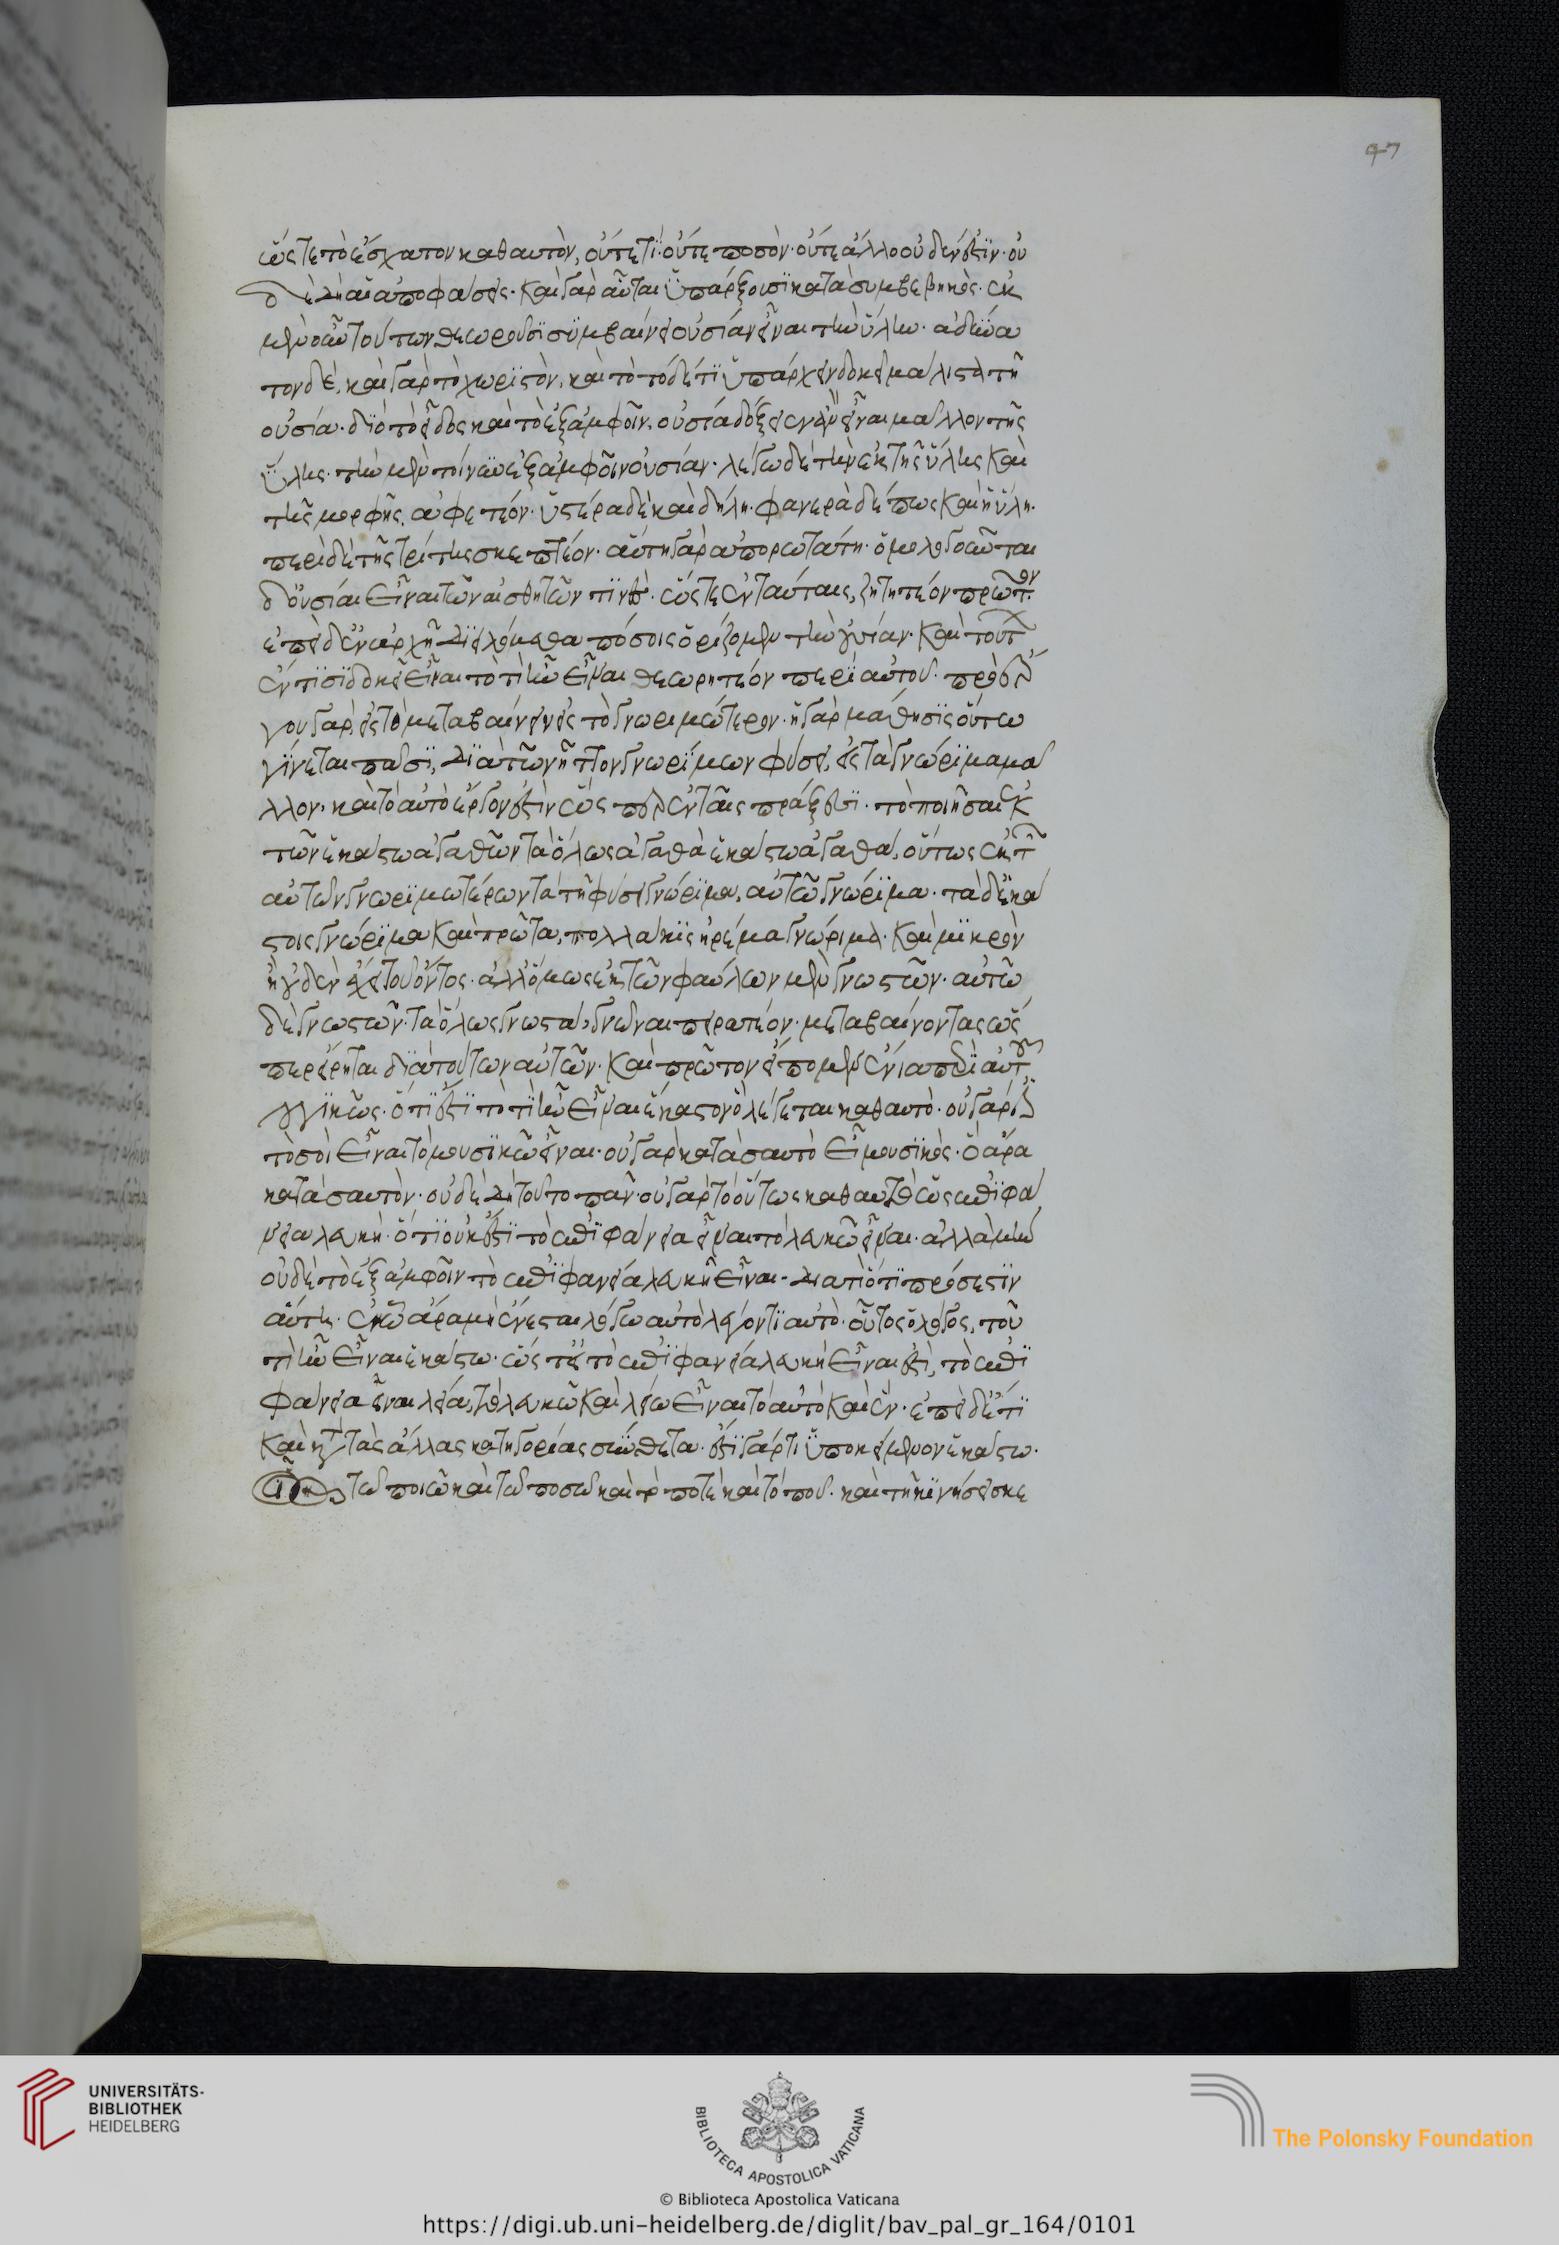 ὥστε τὸ ἔσχατον καθαυτὸν, οὔτε τί· οὔτε ποσὸν· οὔτε ἄλλο οὐδέν ἐστιν· οὐ
δὲ δὴ αἱ ἀποφάσεις· καὶ γὰρ αὗται ὑπάρξουσι κατὰ συμβεβηκός· ἐκ
μὲν οὖν τούτων θεωροῦσι συμβαίνει οὐσίαν εἶναι τὴν ὕλην· ἀδύνα
τον δὲ, καὶ γὰρ τὸ χωριστὸν, καὶ τὸ τόδε τι ὑπάρχειν δοκεῖ μάλιστα τῇ
οὐσία· διὸ τὸ εἶδος καὶ τὸ ἐξ ἀμφοῖν, οὐσία δόξειεν ἂν εἶναι μᾶλλον τῆς
ὕλης· τὴν μὲν τοίνυν ἐξ ἀμφοῖν οὐσίαν· λέγω δὲ τὴν ἐκ τῆς ὕλης καὶ
τῆς μορφῆς, ἀφετέον· ὑστέρα δὲ καὶ δήλη· φανερὰ δέ πως καὶ ἡ ὕλη·
περὶ δὲ τῆς τρίτης σκεπτέον· αὕτη γὰρ ἀπορωτάτη· ὁμολογοῦνται
δ' οὐσίαι εἶναι τῶν αἰσθητῶν τινές· ὥστε ἐν ταύταις, ζητητέον πρῶτον
ἐπεὶ δ' ἐν ἀρχῇ διειλόμεθα πόσοις ὁρίζομεν τὴν οὐσίαν· καὶ τούτων
ἕν τι δοκεῖ εἶναι τὸ τί ἦν εἶναι θεωρητέον περὶ αὐτοῦ· πρὸ ἔρ
γου γὰρ, εἰς τὸ μεταβαίνειν εἰς τὸ γνωριμώτερον· ἡ γὰρ μάθησις οὕτω
γίνεται πᾶσι, διὰ τῶν ἧττον γνωρίμων φύσει, εἰς τὰ γνώριμα μᾶ
λλον· καὶ τὸ αὐτὸ ἔργον ἐστὶν ὥσπερ ἐν ταῖς πράξεσι· τὸ ποιῆσαι ἐκ
τῶν ἑκάστω ἀγαθῶν τὰ ὅλως ἀγαθὰ ἑκάστω ἀγαθά, οὕτως ἐκ τῶν
αὐτῶν γνωριμωτέρων τὰ τῇ φύσει γνώριμα, αὐτῶ γνώριμα· τὰ δ' ἑκά
στοις γνώριμα καὶ πρῶτα, πολλάκις ἠρέμα γνώριμα· καὶ μικρὸν
ἢ οὐδὲν ἔχει τοῦ ὄντος· ἀλλ' ὅμως ἐκ τῶν φαύλων μὲν γνωστῶν· αὐτῶ
δὲ γνωστῶν· τὰ ὅλως γνωστὰ, γνῶναι πειρατέον· μεταβαίνοντας ὥς
περ εἴρηται διὰ τούτων αὐτῶν· καὶ πρῶτον εἴπομεν ἔνια περὶ αὐτοῦ
λογικῶς· ὅτι ἐστὶ τὸ τί ἦν εἶναι ἕκαστον ὃ λέγεται καθαυτὸ· οὐ γάρ ἐστι
τὸ σοὶ εἶναι τὸ μουσικῶ εἶναι· οὐ γὰρ κατὰ σαυτὸ εἶ μουσικὸς· ὃ ἄρα
κατὰ σαυτὸν· οὐδὲ δὴ τοῦτο πᾶν· οὐ γὰρ τὸ οὕτως καθαυτὸ ὡς ἐπιφα
νεία λευκή· ὅτι οὐκ ἔστι τὸ ἐπιφανεία εἶναι τὸ λευκῶ εἶναι· ἀλλὰ μὴν
οὐδὲ τὸ ἐξ ἀμφοῖν τὸ ἐπιφανεία λευκῆ εἶναι· διατὶ ὅτι πρόσεστιν
αὕτη· ἐν ᾧ ἄρα μὴ ἐνέσται λόγω αὐτὸ λέγοντι αὐτὸ· οὗτος ὁ λόγος, τοῦ
τί ἦν εἶναι ἑκάστω· ὥστ' εἰ τὸ ἐπιφανεία λευκῆ εἶναι ἐστὶ, τὸ ἐπι
φανεία εἶναι λεία, τὸ λευκῶ καὶ λείω εἶναι τὸ αὐτὸ καὶ ἕν· ἐπεὶ δ' ἔστι
καὶ κατὰ τὰς ἄλλας κατηγορίας σύνθετα· ἔστι γάρ τι ὑποκείμενον ἑκάστω·
οἷον τῶ ποιῶ καὶ τῶ ποσῶ καὶ τῶ ποτὲ καὶ τὸ ποῦ· καὶ τῇ κινήσει σκε
47
UNIVERSITÄTS-
BIBLIOTHEK
HEIDELBERG
BIBLIOTECA APOSTOLICA VATICANA
The Polonsky Foundation
© Biblioteca Apostolica Vaticana
https://digi.ub.uni-heidelberg.de/diglit/bav_pal_gr_164/0101